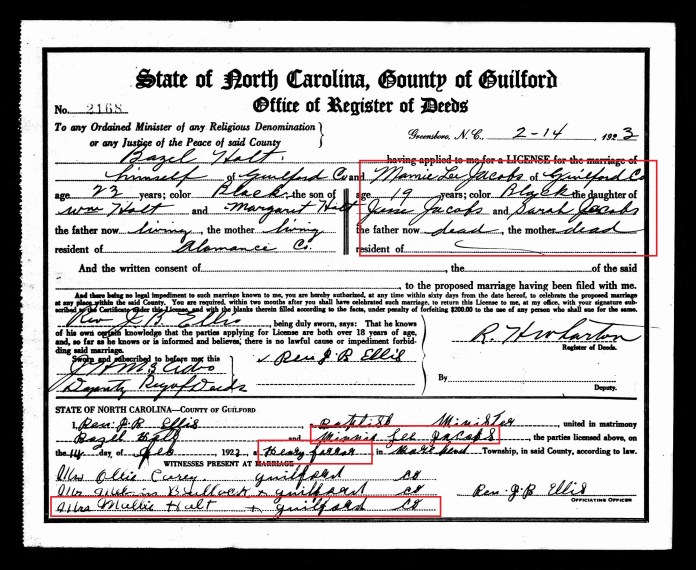 State of North Carolina, County of Guilford
No. 2168 Office of Register of Deeds
To any Ordained Minister of any Religious Denomination
or any Justice of the Peace of said County
Greensboro, N. C., 2-14, 1923
Bazel Holt. having applied to me for a LICENSE for the marriage of
himself of Guilford Co and Mamie Lee Jacobs of Guilford Co
age 23 years; color Black the son of age 19 years; color Black the daughter of
Wm Holt and Margaret Holt Jesse Jacobs and Sarah Jacobs
the father now living, the mother living the father now dead, the mother dead
resident of Alamance Co. resident of
And the written consent of, the of the said
, to the proposed marriage having been filed with me.
And there being no legal impediment to such marriage known to me, you are hereby authorized, at any time within sixty days from the date hereof, to celebrate the proposed marriage
at any place within the said County. You are required, within two months after you shall have celebrated such marriage, to return this License to me, at my office, with your signature sub-
scribed to the Certificate under this License, and with the blanks therein filled according to the facts, under penalty of forfeiting $200.00 to the use of any person who shall sue for the same.
Rev J. B. Ellis being duly sworn, says: That he knows
of his own certain knowledge that the parties applying for License are both over 18 years of age,
and, so far as he knows or is informed and believes, there is no lawful cause or impediment forbid-
ding said marriage.
R. H Wharton
Register of Deeds.
Sworn and subscribed to before me this
Rev. J B Ellis
Deputy Reg of Deeds
By
Deputy.
STATE OF NORTH CAROLINA—COUNTY OF GUILFORD
I, Rev. J. B. Ellis a Baptist Minister, united in matrimony
Bazel Holt and Minnie Lee Jacobs, the parties licensed above, on
the 14 day of Feb 1923, a in Township, in said County, according to law.
WITNESSES PRESENT AT MARRIAGE
Mrs Ollie Carey. guilford Co
Bullock guilford Co
Rev. J-B Ellis
OFFICIATING OFFICER
Mrs Mollie Holt guilford Co